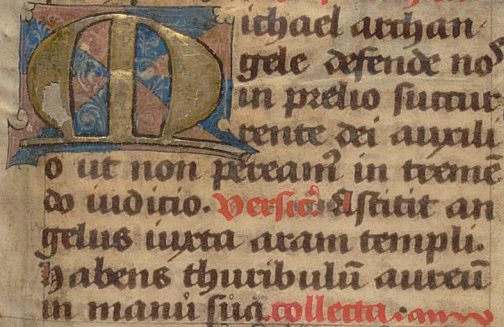 Michael archan
gele defende nos
in prelio succur
rente dei auxili
o ut non pereamꝰ in treme̅
do iudicio. Versic̉. Astitit an
gelus iuxta aram templi.
Habens thuribulu̅ aureu̅
in manu sua. collecta.